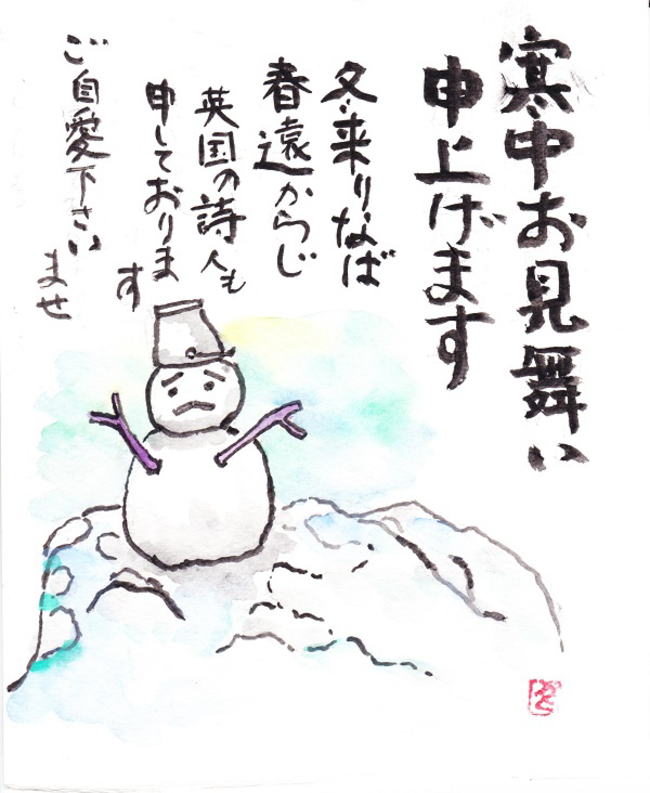 寒中お見舞い
申上げます
冬来りなば
春遠からじ
英国の詩人も
申しておりま
す
ご自愛下さい
ませ